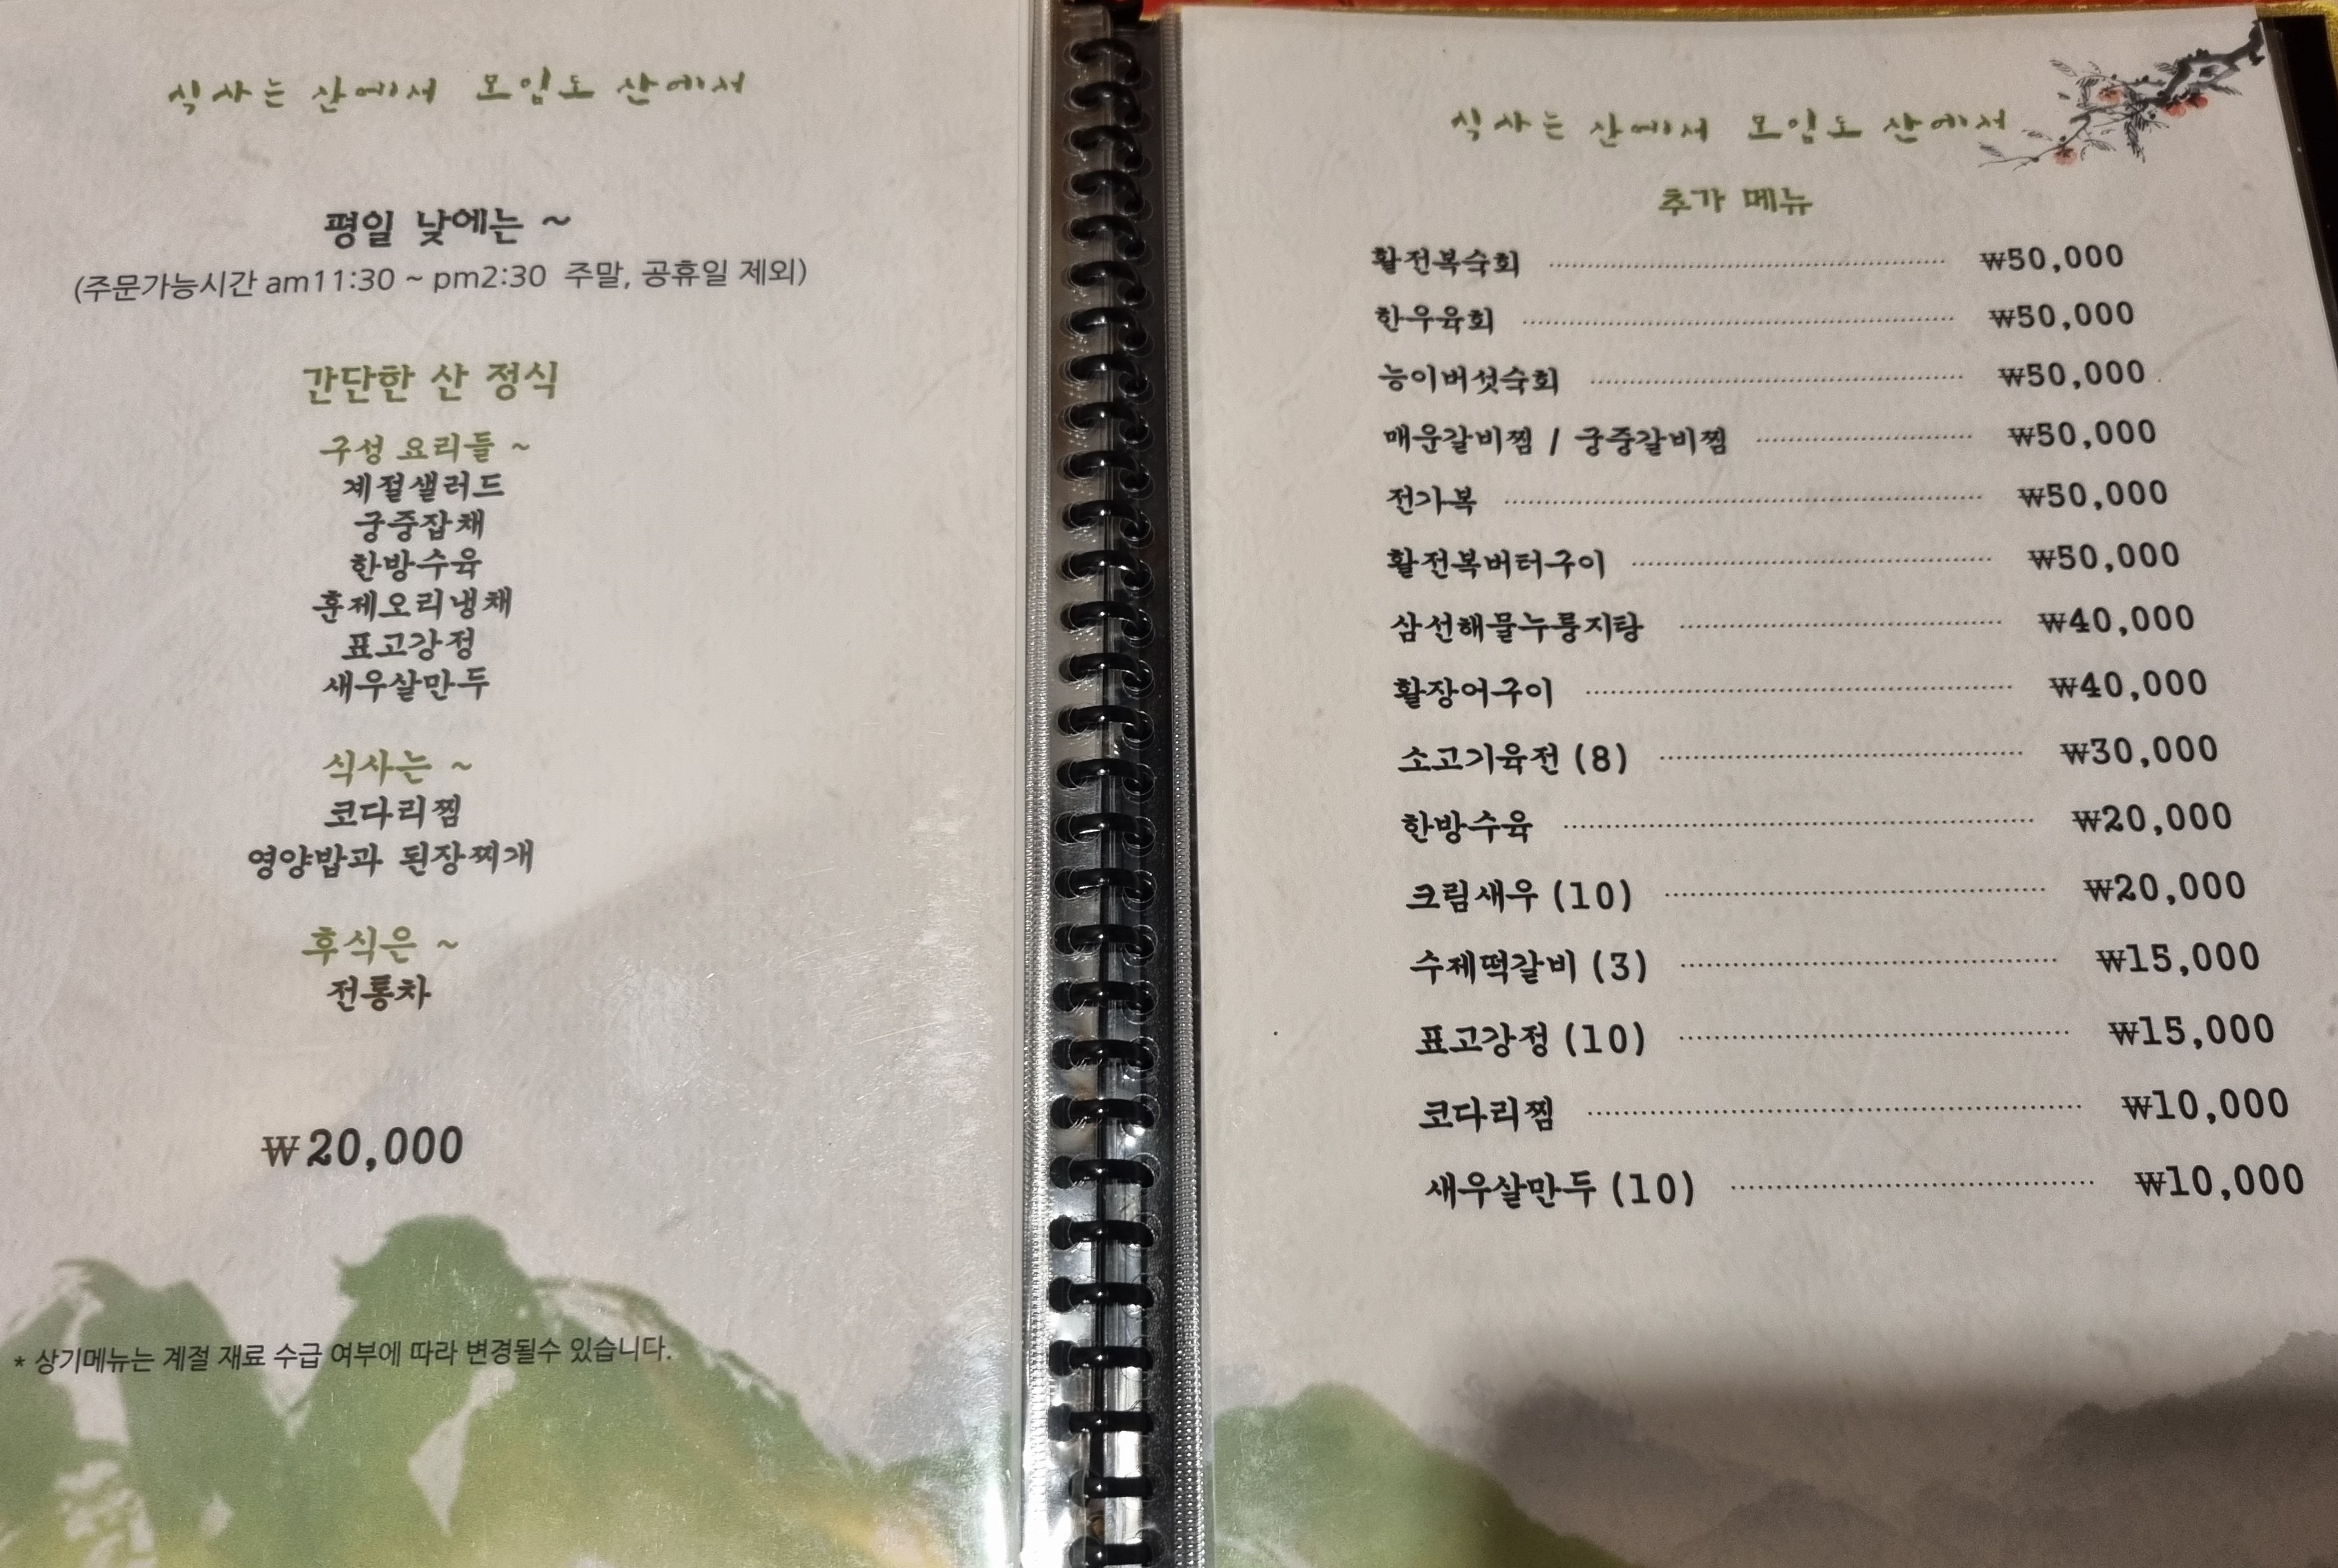 식사는 산에서 모임도 산에서
평일 낮에는 ~
(주문가능시간 am11:30 ~ pm2:30 주말, 공휴일 제외)
간단한 산 정식
구성 요리들 ~
계절샐러드
궁중잡채
한방수육
훈제오리냉채
표고강정
새우살만두
식사는 ~
코다리찜
영양밥과 된장찌개
후식은 ~
전통차
₩20,000
* 상기메뉴는 계절 재료 수급 여부에 따라 변경될수 있습니다.
식사는 산에서 모임도 산에서
추가 메뉴
활전복숙회 ₩50,000
한우육회 ₩50,000
능이버섯숙회 ₩50,000
매운갈비찜 / 궁중갈비찜 ₩50,000
전가복 ₩50,000
활전복버터구이 ₩50,000
삼선해물누룽지탕 ₩40,000
활장어구이 ₩40,000
소고기육전 (8) ₩30,000
한방수육 ₩20,000
크림새우 (10) ₩20,000
수제떡갈비 (3) ₩15,000
표고강정 (10) ₩15,000
코다리찜 ₩10,000
새우살만두 (10) ₩10,000